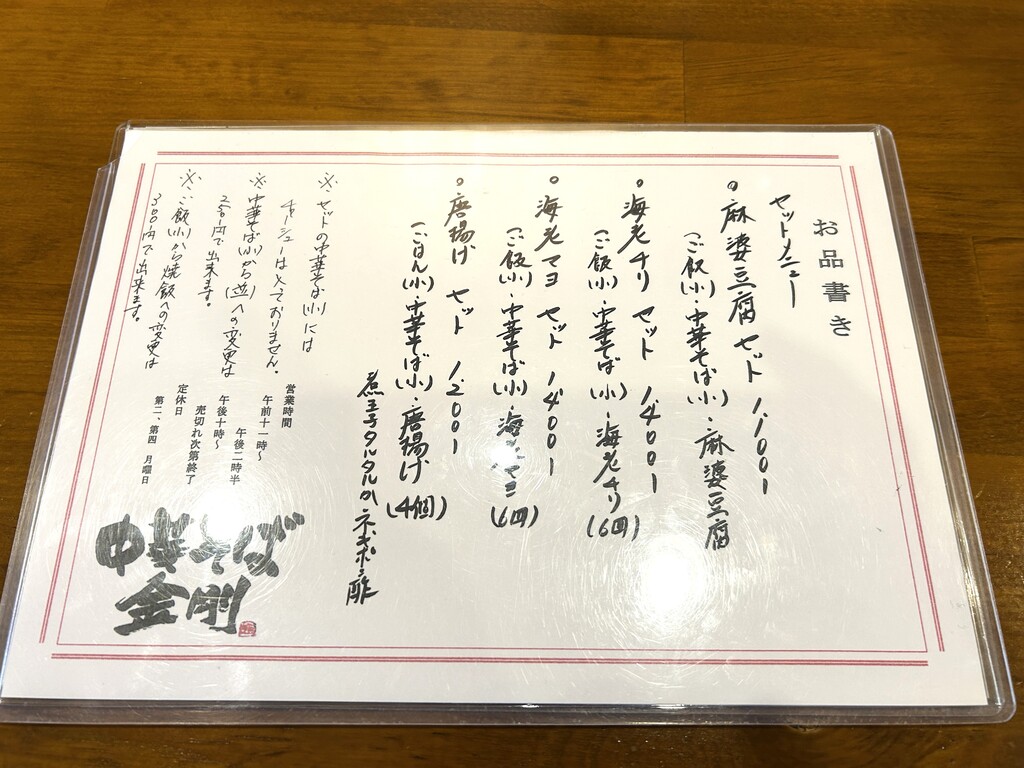 お品書き
セットメニュー
○麻婆豆腐セット 1,100ー
(ご飯(小)・中華そば(小)・麻婆豆腐
○海老チリ セット 1,400ー
(ご飯(小)・中華そば(小)・海老チリ(6個)
○海老マヨ セット 1,400ー
(ご飯(小)・中華そば(小)・海老マヨ(6個)
○唐揚げ セット 1,200ー
(ごはん(小)・中華そば(小)・唐揚げ(4個)
煮玉子タルタルorネギポン酢
※セットの中華そば(小)には
チャーシューは入っておりません。
※中華そば(小)から(並)への変更は
250円で出来ます。
※ご飯(小)から焼飯への変更は
300円で出来ます。
営業時間
午前十一時〜
午後二時半
午後十時〜
売切れ次第終了
定休日
第二、第四 月曜日
中華そば
金剛